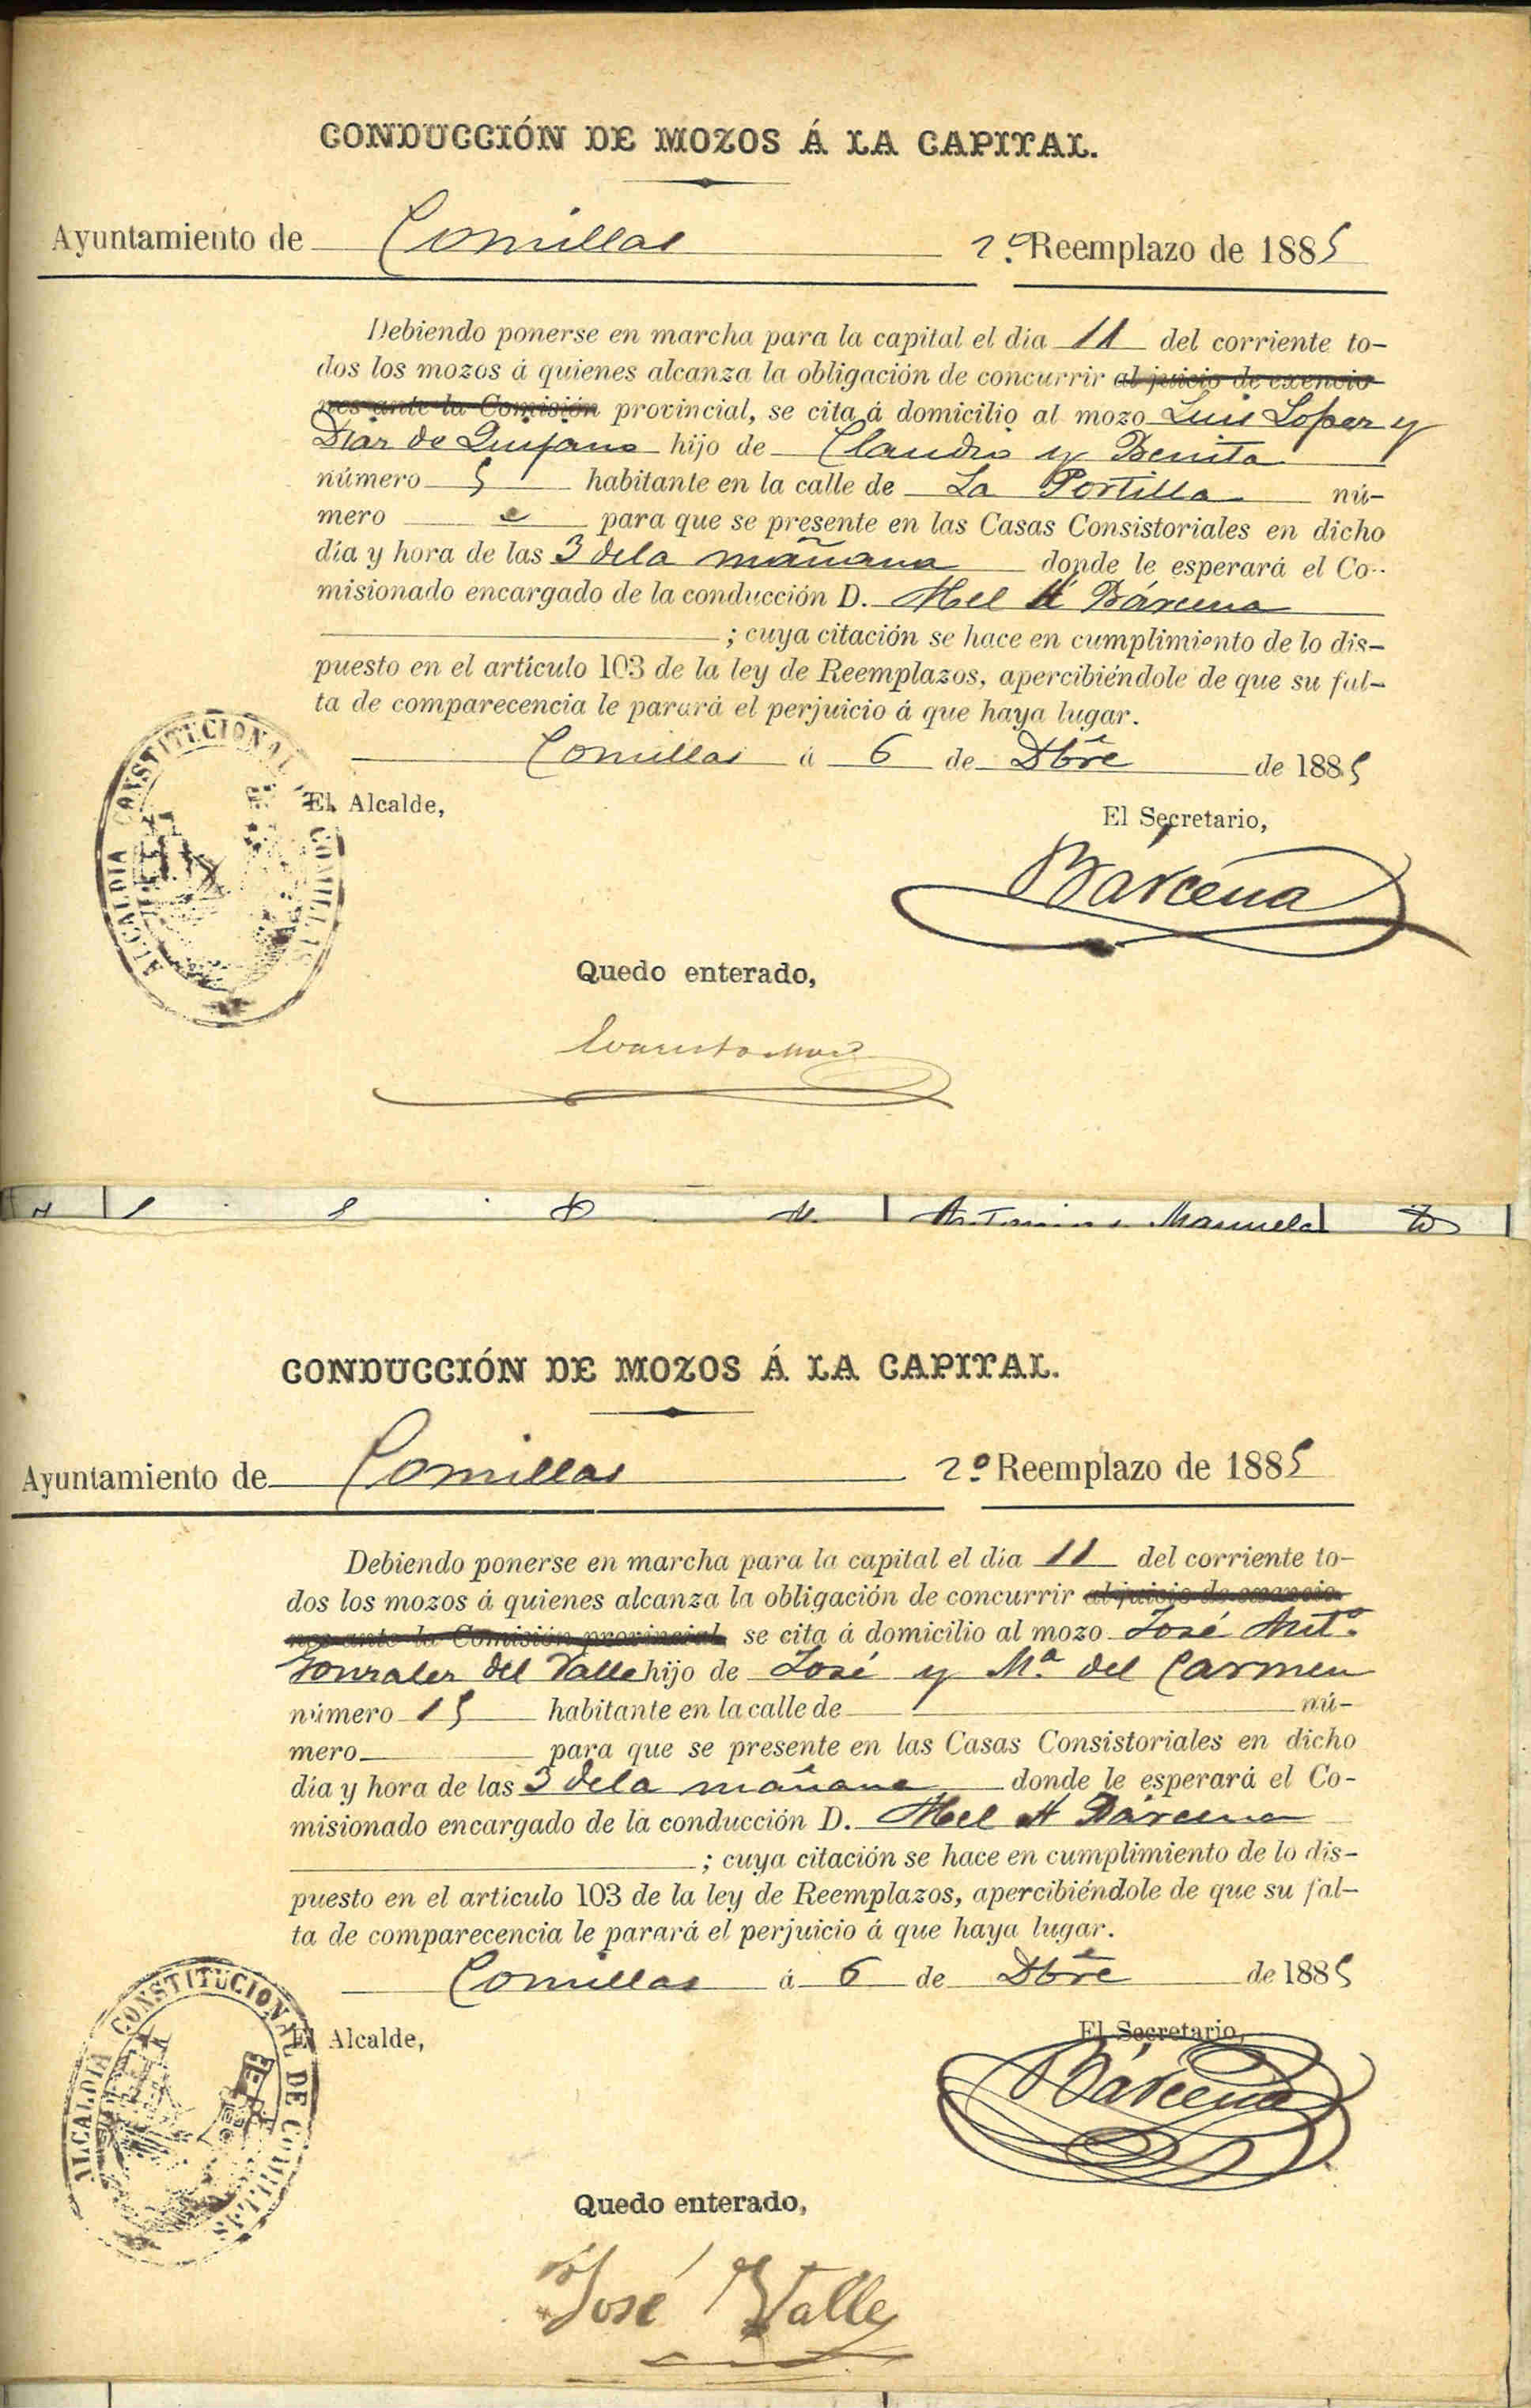 CONDUCCIÓN DE MOZOS Á LA CAPITAL.
Ayuntamiento de Comillas 2.º Reemplazo de 1885
Debiendo ponerse en marcha para la capital el dia 11 del corriente to-
dos los mozos á quienes alcanza la obligación de concurrir al juicio de exencio-
nes ante la Comisión provincial, se cita á domicilio al mozo Luis Lopez y
Diaz de Quijano hijo de Claudio y Benita
número 5 habitante en la calle de La Portilla nú-
mero para que se presente en las Casas Consistoriales en dicho
día y hora de las 3 dela mañana donde le esperará el Co-
misionado encargado de la conducción D. Abel H Bárcena
; cuya citación se hace en cumplimiento de lo dis-
puesto en el artículo 103 de la ley de Reemplazos, apercibiéndole de que su fal-
ta de comparecencia le parará el perjuicio á que haya lugar.
Comillas á 6 de Dbre de 1885
El Alcalde,
El Secretario,
ALCALDIA CONSTITUCIONAL DE COMILLAS
Bárcena
Quedo enterado,
Evaristo
Antonio Manuela
CONDUCCIÓN DE MOZOS Á LA CAPITAL.
Ayuntamiento de Comillas 2.º Reemplazo de 1885
Debiendo ponerse en marcha para la capital el dia 11 del corriente to-
dos los mozos á quienes alcanza la obligación de concurrir al juicio de exencio-
nes ante la Comisión provincial, se cita á domicilio al mozo José Ant.º
Gonzalez del Valle hijo de José y M.ª del Carmen
número 15 habitante en la calle de nú-
mero para que se presente en las Casas Consistoriales en dicho
dia y hora de las 3 dela mañana donde le esperará el Co-
misionado encargado de la conducción D. Abel H Bárcena
; cuya citación se hace en cumplimiento de lo dis-
puesto en el artículo 103 de la ley de Reemplazos, apercibiéndole de que su fal-
ta de comparecencia le parará el perjuicio á que haya lugar.
Comillas á 6 de Dbre de 1885
El Alcalde,
El Secretario,
ALCALDIA CONSTITUCIONAL DE COMILLAS
Bárcena
Quedo enterado,
José Valle